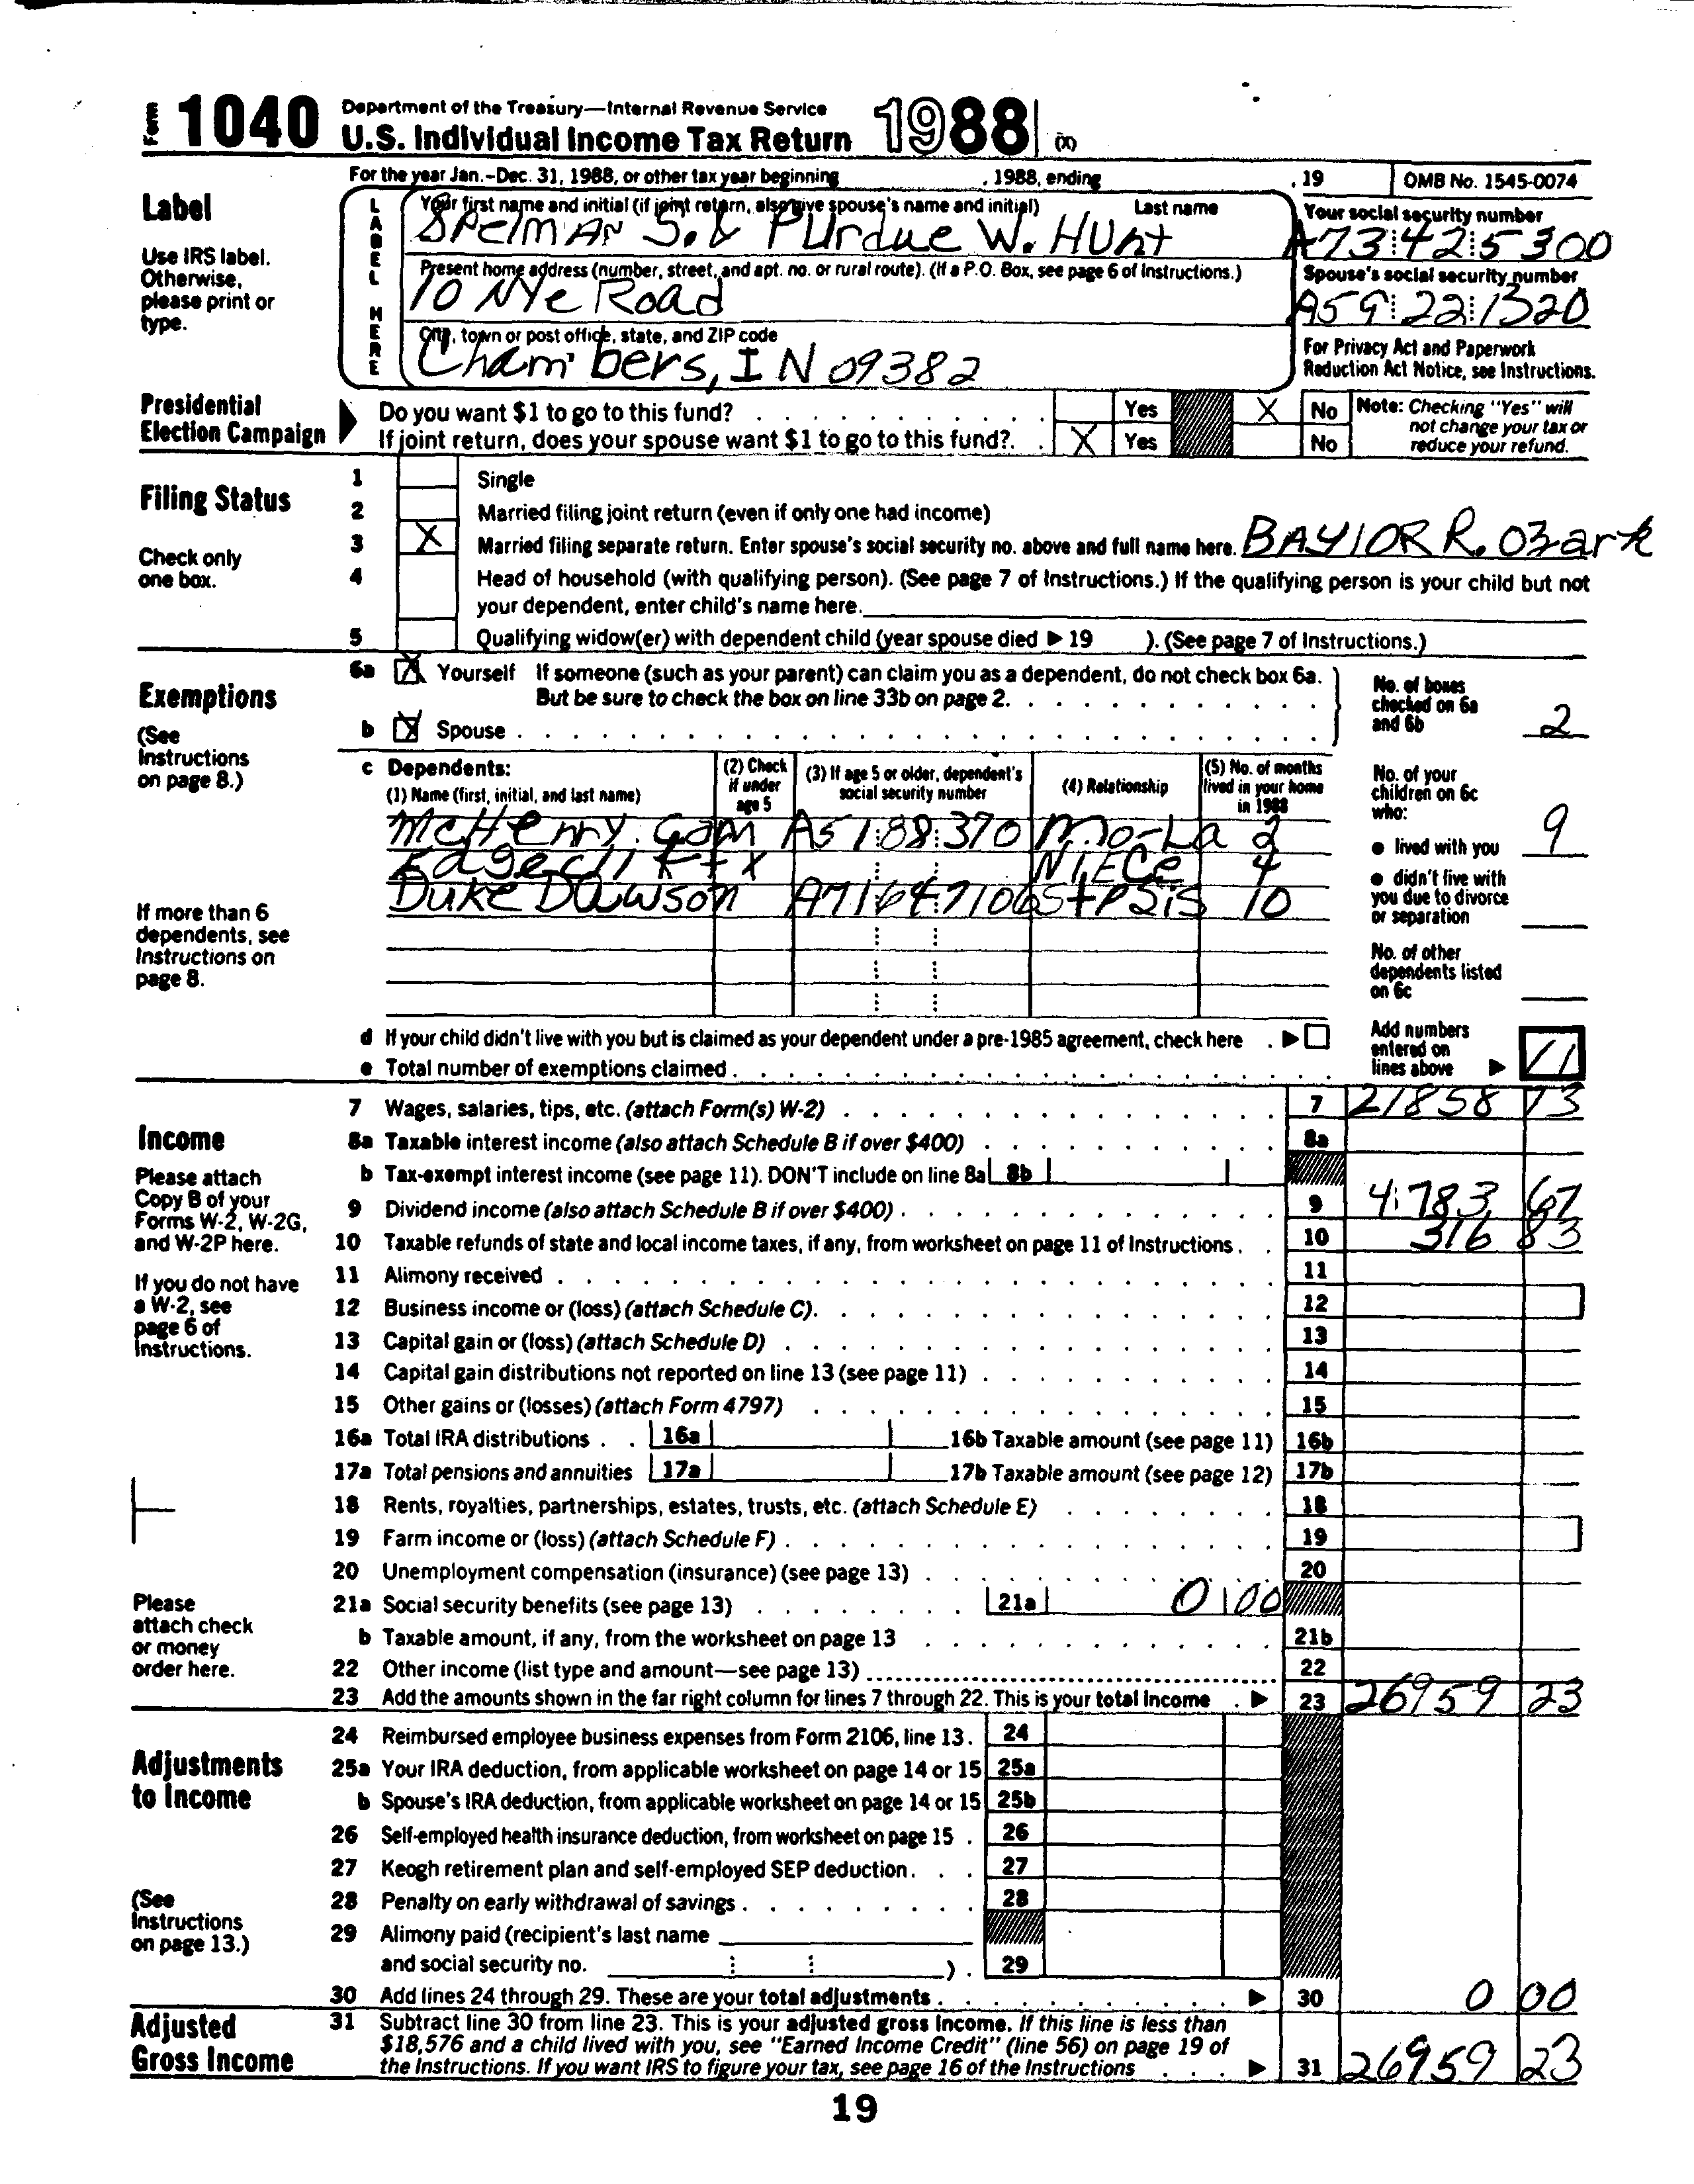 Form 1040 Department of the Treasury—Internal Revenue Service
U.S. Individual Income Tax Return 1988 (X)
For the year Jan.–Dec. 31, 1988, or other tax year beginning , 1988, ending , 19 OMB No. 1545-0074
Label
Use IRS label.
Otherwise,
please print or
type.
LABEL HERE
Your first name and initial (if joint return, also give spouse's name and initial) Last name
SPelmAn S. & PUrdue W. HUnt
Your social security number
A73 42 5300
Present home address (number, street, and apt. no. or rural route). (If a P.O. Box, see page 6 of Instructions.)
10 NYe Road
Spouse's social security number
A59 22 1320
City, town or post office, state, and ZIP code
Chambers, IN 09382
For Privacy Act and Paperwork
Reduction Act Notice, see Instructions.
Presidential
Election Campaign
Do you want $1 to go to this fund? Yes X No
If joint return, does your spouse want $1 to go to this fund?. X Yes No
Note: Checking "Yes" will
not change your tax or
reduce your refund.
Filing Status
Check only
one box.
1 Single
2 Married filing joint return (even if only one had income)
3 X Married filing separate return. Enter spouse's social security no. above and full name here. BAYlOR R. Ozark
4 Head of household (with qualifying person). (See page 7 of Instructions.) If the qualifying person is your child but not
your dependent, enter child's name here.
5 Qualifying widow(er) with dependent child (year spouse died ▶ 19 ). (See page 7 of Instructions.)
Exemptions
(See
Instructions
on page 8.)
6a X Yourself If someone (such as your parent) can claim you as a dependent, do not check box 6a.
But be sure to check the box on line 33b on page 2.
b X Spouse
No. of boxes
checked on 6a
and 6b 2
c Dependents:
(1) Name (first, initial, and last name)
(2) Check
if under
age 5
(3) If age 5 or older, dependent's
social security number
(4) Relationship
(5) No. of months
lived in your home
in 1988
McHenry Gam A51 88 370 Mo-La 2
X NIECe 4
Duke Dawson A71 64 7106 StPSiS 10
If more than 6
dependents, see
Instructions on
page 8.
No. of your
children on 6c
who:
● lived with you 9
● didn't live with
you due to divorce
or separation
No. of other
dependents listed
on 6c
d If your child didn't live with you but is claimed as your dependent under a pre-1985 agreement, check here . ▶
e Total number of exemptions claimed
Add numbers
entered on
lines above ▶ 11
Income
Please attach
Copy B of your
Forms W-2, W-2G,
and W-2P here.
If you do not have
a W-2, see
page 6 of
Instructions.
Please
attach check
or money
order here.
7 Wages, salaries, tips, etc. (attach Form(s) W-2) 7 21858 73
8a Taxable interest income (also attach Schedule B if over $400) 8a
b Tax-exempt interest income (see page 11). DON'T include on line 8a 8b
9 Dividend income (also attach Schedule B if over $400) 9 4783 67
10 Taxable refunds of state and local income taxes, if any, from worksheet on page 11 of Instructions 10 316 83
11 Alimony received 11
12 Business income or (loss) (attach Schedule C) 12
13 Capital gain or (loss) (attach Schedule D) 13
14 Capital gain distributions not reported on line 13 (see page 11) 14
15 Other gains or (losses) (attach Form 4797) 15
16a Total IRA distributions 16a 16b Taxable amount (see page 11) 16b
17a Total pensions and annuities 17a 17b Taxable amount (see page 12) 17b
18 Rents, royalties, partnerships, estates, trusts, etc. (attach Schedule E) 18
19 Farm income or (loss) (attach Schedule F) 19
20 Unemployment compensation (insurance) (see page 13) 20
21a Social security benefits (see page 13) 21a 0 00
b Taxable amount, if any, from the worksheet on page 13 21b
22 Other income (list type and amount—see page 13) 22
23 Add the amounts shown in the far right column for lines 7 through 22. This is your total income . ▶ 23 26959 23
Adjustments
to Income
(See
Instructions
on page 13.)
24 Reimbursed employee business expenses from Form 2106, line 13. 24
25a Your IRA deduction, from applicable worksheet on page 14 or 15 25a
b Spouse's IRA deduction, from applicable worksheet on page 14 or 15 25b
26 Self-employed health insurance deduction, from worksheet on page 15 . 26
27 Keogh retirement plan and self-employed SEP deduction. 27
28 Penalty on early withdrawal of savings 28
29 Alimony paid (recipient's last name
and social security no. ) . 29
30 Add lines 24 through 29. These are your total adjustments ▶ 30 0 00
Adjusted
Gross Income
31 Subtract line 30 from line 23. This is your adjusted gross income. If this line is less than
$18,576 and a child lived with you, see "Earned Income Credit" (line 56) on page 19 of
the Instructions. If you want IRS to figure your tax, see page 16 of the Instructions ▶ 31 26959 23
19